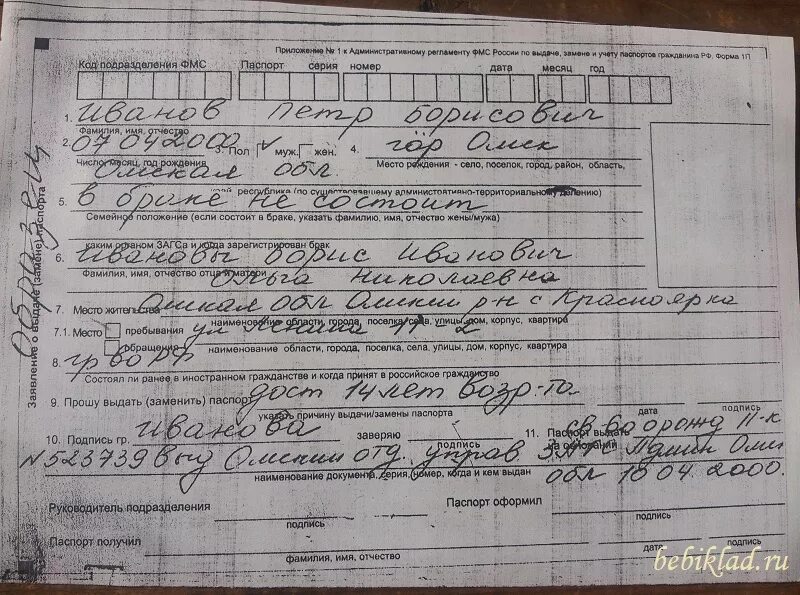 Приложение № 1 к Административному регламенту ФМС России по выдаче, замене и учету паспортов гражданина РФ. Форма 1П
Код подразделения ФМС Паспорт серия номер дата месяц год
1. Иванов Петр Борисович
Фамилия, имя, отчество
2. 07 04 2000 3. Пол V муж. жен. 4. гор Омск
Число, месяц, год рождения Место рождения - село, поселок, город, район, область,
Омская обл
край, республика (по существовавшему административно-территориальному делению)
5. в браке не состоит
Семейное положение (если состоит в браке, указать фамилию, имя, отчество жены/мужа)
каким органом ЗАГСа и когда зарегистрирован брак
6. Ивановы Борис Иванович
Фамилия, имя, отчество отца и матери
Ольга Николаевна
7. Место жительства Омская обл Омский р-н с Красноярка
наименование области, города, поселка, села, улицы, дом, корпус, квартира
7.1. Место пребывания ул Ленина
обращения наименование области, города, поселка, села, улицы, дом, корпус, квартира
8. гр-во РФ
Состоял ли ранее в иностранном гражданстве и когда принят в российское гражданство
9. Прошу выдать (заменить) паспорт дост 14 лет возр-та
указать причину выдачи/замены паспорта дата подпись
10. Подпись гр. Иванова заверяю подпись 11. Паспорт выдать на основании св-ва о рожд II-к
N 523739 выд Омским отд управ ЗАГС Админ Омс
наименование документа, серия, номер, когда и кем выдан обл 18 04 2000.
Руководитель подразделения Паспорт оформил
подпись подпись
Паспорт получил
фамилия, имя, отчество дата подпись
Заявление о выдаче (замене) паспорта
Образец
bebiklad.ru